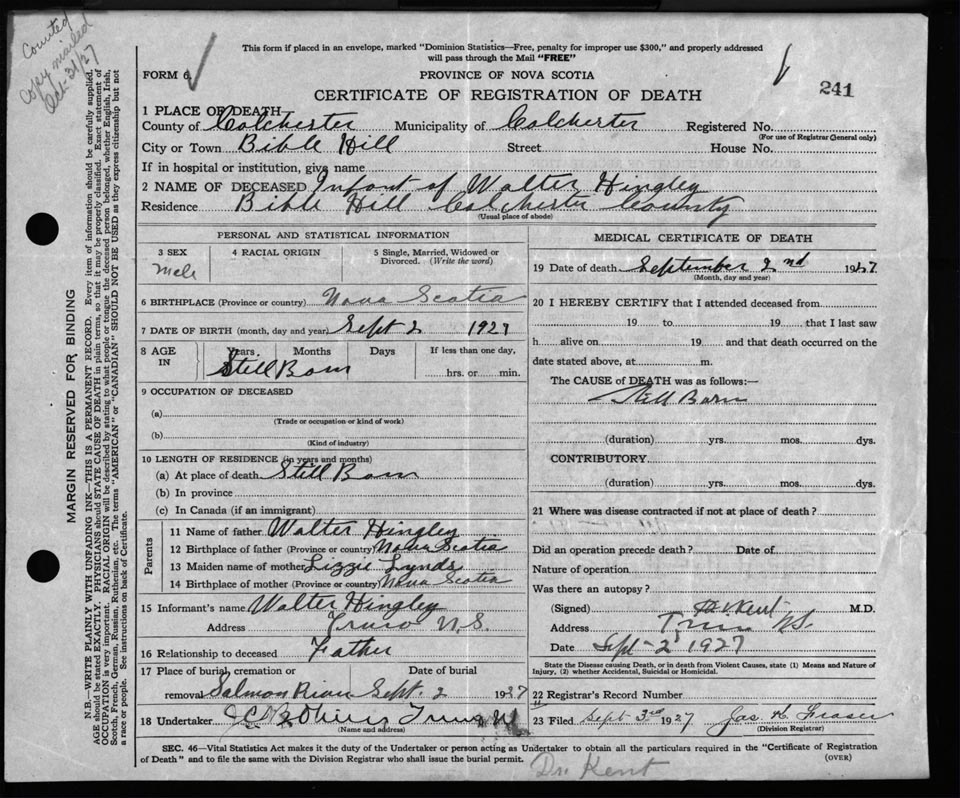 Counted
Copy mailed
Oct 31/27
This form if placed in an envelope, marked "Dominion Statistics—Free, penalty for improper use $300," and properly addressed
will pass through the Mail "FREE"
FORM 6
PROVINCE OF NOVA SCOTIA
CERTIFICATE OF REGISTRATION OF DEATH
241
1 PLACE OF DEATH
County of Colchester Municipality of Colchester Registered No.
(For use of Registrar General only)
City or Town Bible Hill Street House No.
If in hospital or institution, give name
2 NAME OF DECEASED Infant of Walter Hingley
Residence Bible Hill Colchester County
(Usual place of abode)
PERSONAL AND STATISTICAL INFORMATION
3 SEX Male
4 RACIAL ORIGIN
5 Single, Married, Widowed or Divorced. (Write the word)
6 BIRTHPLACE (Province or country) Nova Scotia
7 DATE OF BIRTH (month, day and year) Sept 2 1927
8 AGE IN Years Months Days If less than one day,
Still Born hrs. or min.
9 OCCUPATION OF DECEASED
(a)
(Trade or occupation or kind of work)
(b)
(Kind of industry)
10 LENGTH OF RESIDENCE (in years and months)
(a) At place of death Still Born
(b) In province
(c) In Canada (if an immigrant)
Parents
11 Name of father Walter Hingley
12 Birthplace of father (Province or country) Nova Scotia
13 Maiden name of mother Lizzie Lynds
14 Birthplace of mother (Province or country) Nova Scotia
15 Informant's name Walter Hingley
Address Truro N.S.
16 Relationship to deceased Father
17 Place of burial, cremation or Date of burial
removal Salmon River Sept. 2 1927
18 Undertaker Truro NS
(Name and address)
MEDICAL CERTIFICATE OF DEATH
19 Date of death September 2nd 1927
(Month, day and year)
20 I HEREBY CERTIFY that I attended deceased from
19 to 19 that I last saw
h alive on 19 and that death occurred on the
date stated above, at m.
The CAUSE of DEATH was as follows:—
Still Born
(duration) yrs. mos. dys.
CONTRIBUTORY
(duration) yrs. mos. dys.
21 Where was disease contracted if not at place of death?
Did an operation precede death? Date of
Nature of operation
Was there an autopsy?
(Signed) Kent M.D.
Address Truro NS.
Date Sept 2 1927
State the Disease causing Death, or in death from Violent Causes, state (1) Means and Nature of
Injury, (2) whether Accidental, Suicidal or Homicidal.
22 Registrar's Record Number
23 Filed Sept 3rd 1927 Jas K Fraser
(Division Registrar)
SEC. 46—Vital Statistics Act makes it the duty of the Undertaker or person acting as Undertaker to obtain all the particulars required in the "Certificate of Registration
of Death" and to file the same with the Division Registrar who shall issue the burial permit.
(OVER)
Dr. Kent
MARGIN RESERVED FOR BINDING
N.B.—WRITE PLAINLY WITH UNFADING INK—THIS IS A PERMANENT RECORD. Every item of information should be carefully supplied.
AGE should be stated EXACTLY. PHYSICIANS should STATE CAUSE OF DEATH in plain terms, so that it may be properly classified. Exact statement of
OCCUPATION is very important. RACIAL ORIGIN will be described by stating to what people or tongue the deceased person belonged, whether English, Irish,
Scotch, French, German, Russian, Ruthenian, etc. The terms "AMERICAN" or "CANADIAN" SHOULD NOT BE USED as they express citizenship but not
a race or people. See instructions on back of Certificate.